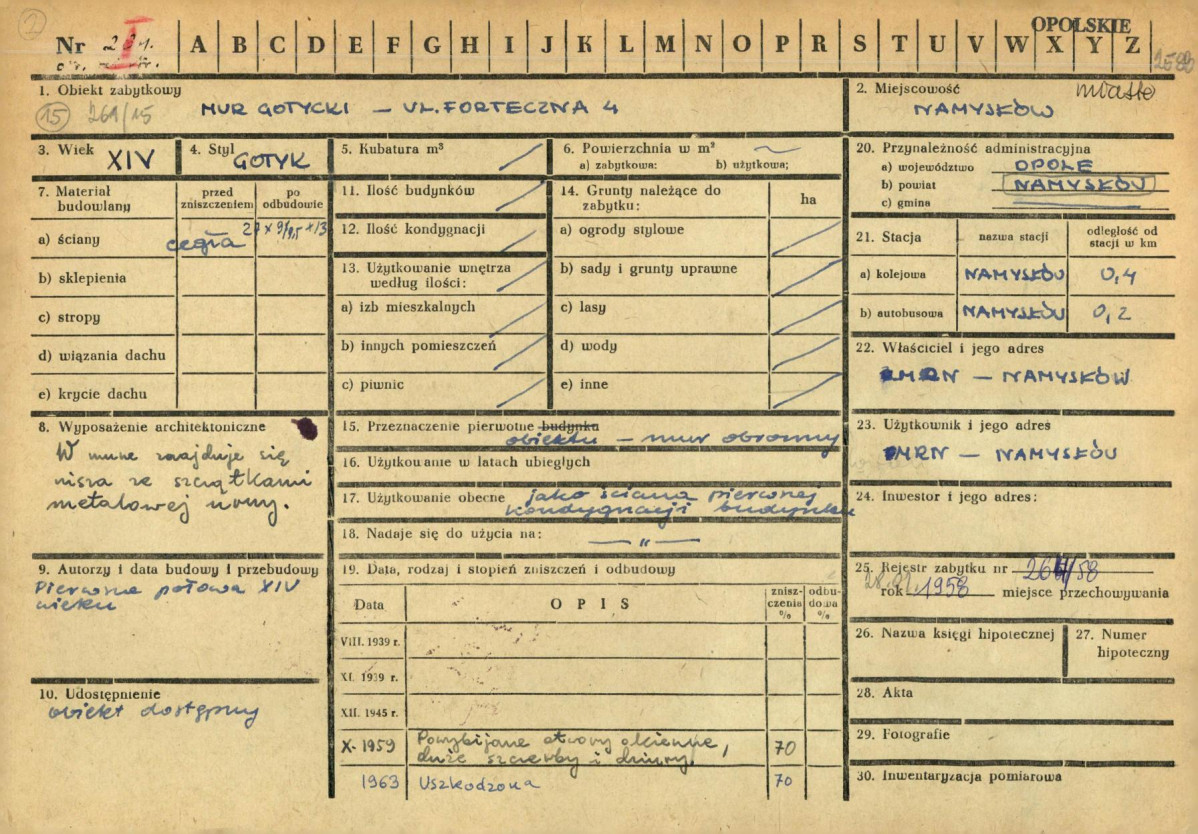 OPOLSKIE
Nr A B C D E F G H I J K L M N O P R S T U V W X Y Z
I
1. Obiekt zabytkowy
MUR GOTYCKI – UL. FORTECZNA 4
15 261/15
2. Miejscowość miasto
NAMYSŁÓW
3. Wiek XIV
4. Styl GOTYK
5. Kubatura m³
6. Powierzchnia w m²
a) zabytkowa: b) użytkowa;
7. Materiał budowlany
przed zniszczeniem
po odbudowie
a) ściany cegła
b) sklepienia
c) stropy
d) wiązania dachu
e) krycie dachu
8. Wyposażenie architektoniczne
W murze znajduje się
nisza ze szczątkami
metalowej
9. Autorzy i data budowy i przebudowy
Pierwsza połowa XIV
wieku
10. Udostępnienie
obiekt dostępny
11. Ilość budynków
12. Ilość kondygnacji
13. Użytkowanie wnętrza
według ilości:
a) izb mieszkalnych
b) innych pomieszczeń
c) piwnic
14. Grunty należące do
zabytku:
ha
a) ogrody stylowe
b) sady i grunty uprawne
c) lasy
d) wody
e) inne
15. Przeznaczenie pierwotne budynku
obiektu – mur obronny
16. Użytkowanie w latach ubiegłych
17. Użytkowanie obecne jako ściana pierwszej
kondygnacji budynku
18. Nadaje się do użycia na: — " —
19. Data, rodzaj i stopień zniszczeń i odbudowy
Data
OPIS
znisz-
czenia
%
odbu-
dowa
%
VIII. 1939 r.
XI. 1939 r.
XII. 1945 r.
X-1959 Powybijane otwory okienne,
duże szczerby i dziury. 70
1963 Uszkodzona 70
20. Przynależność administracyjna
a) województwo OPOLE
b) powiat NAMYSŁÓW
c) gmina
21. Stacja
nazwa stacji
odległość od
stacji w km
a) kolejowa NAMYSŁÓW 0,4
b) autobusowa NAMYSŁÓW 0,2
22. Właściciel i jego adres
MRN – NAMYSŁÓW
23. Użytkownik i jego adres
PMRN – NAMYSŁÓW
24. Inwestor i jego adres:
25. Rejestr zabytku nr
rok 1958 miejsce przechowywania
26. Nazwa księgi hipotecznej
27. Numer
hipoteczny
28. Akta
29. Fotografie
30. Inwentaryzacja pomiarowa